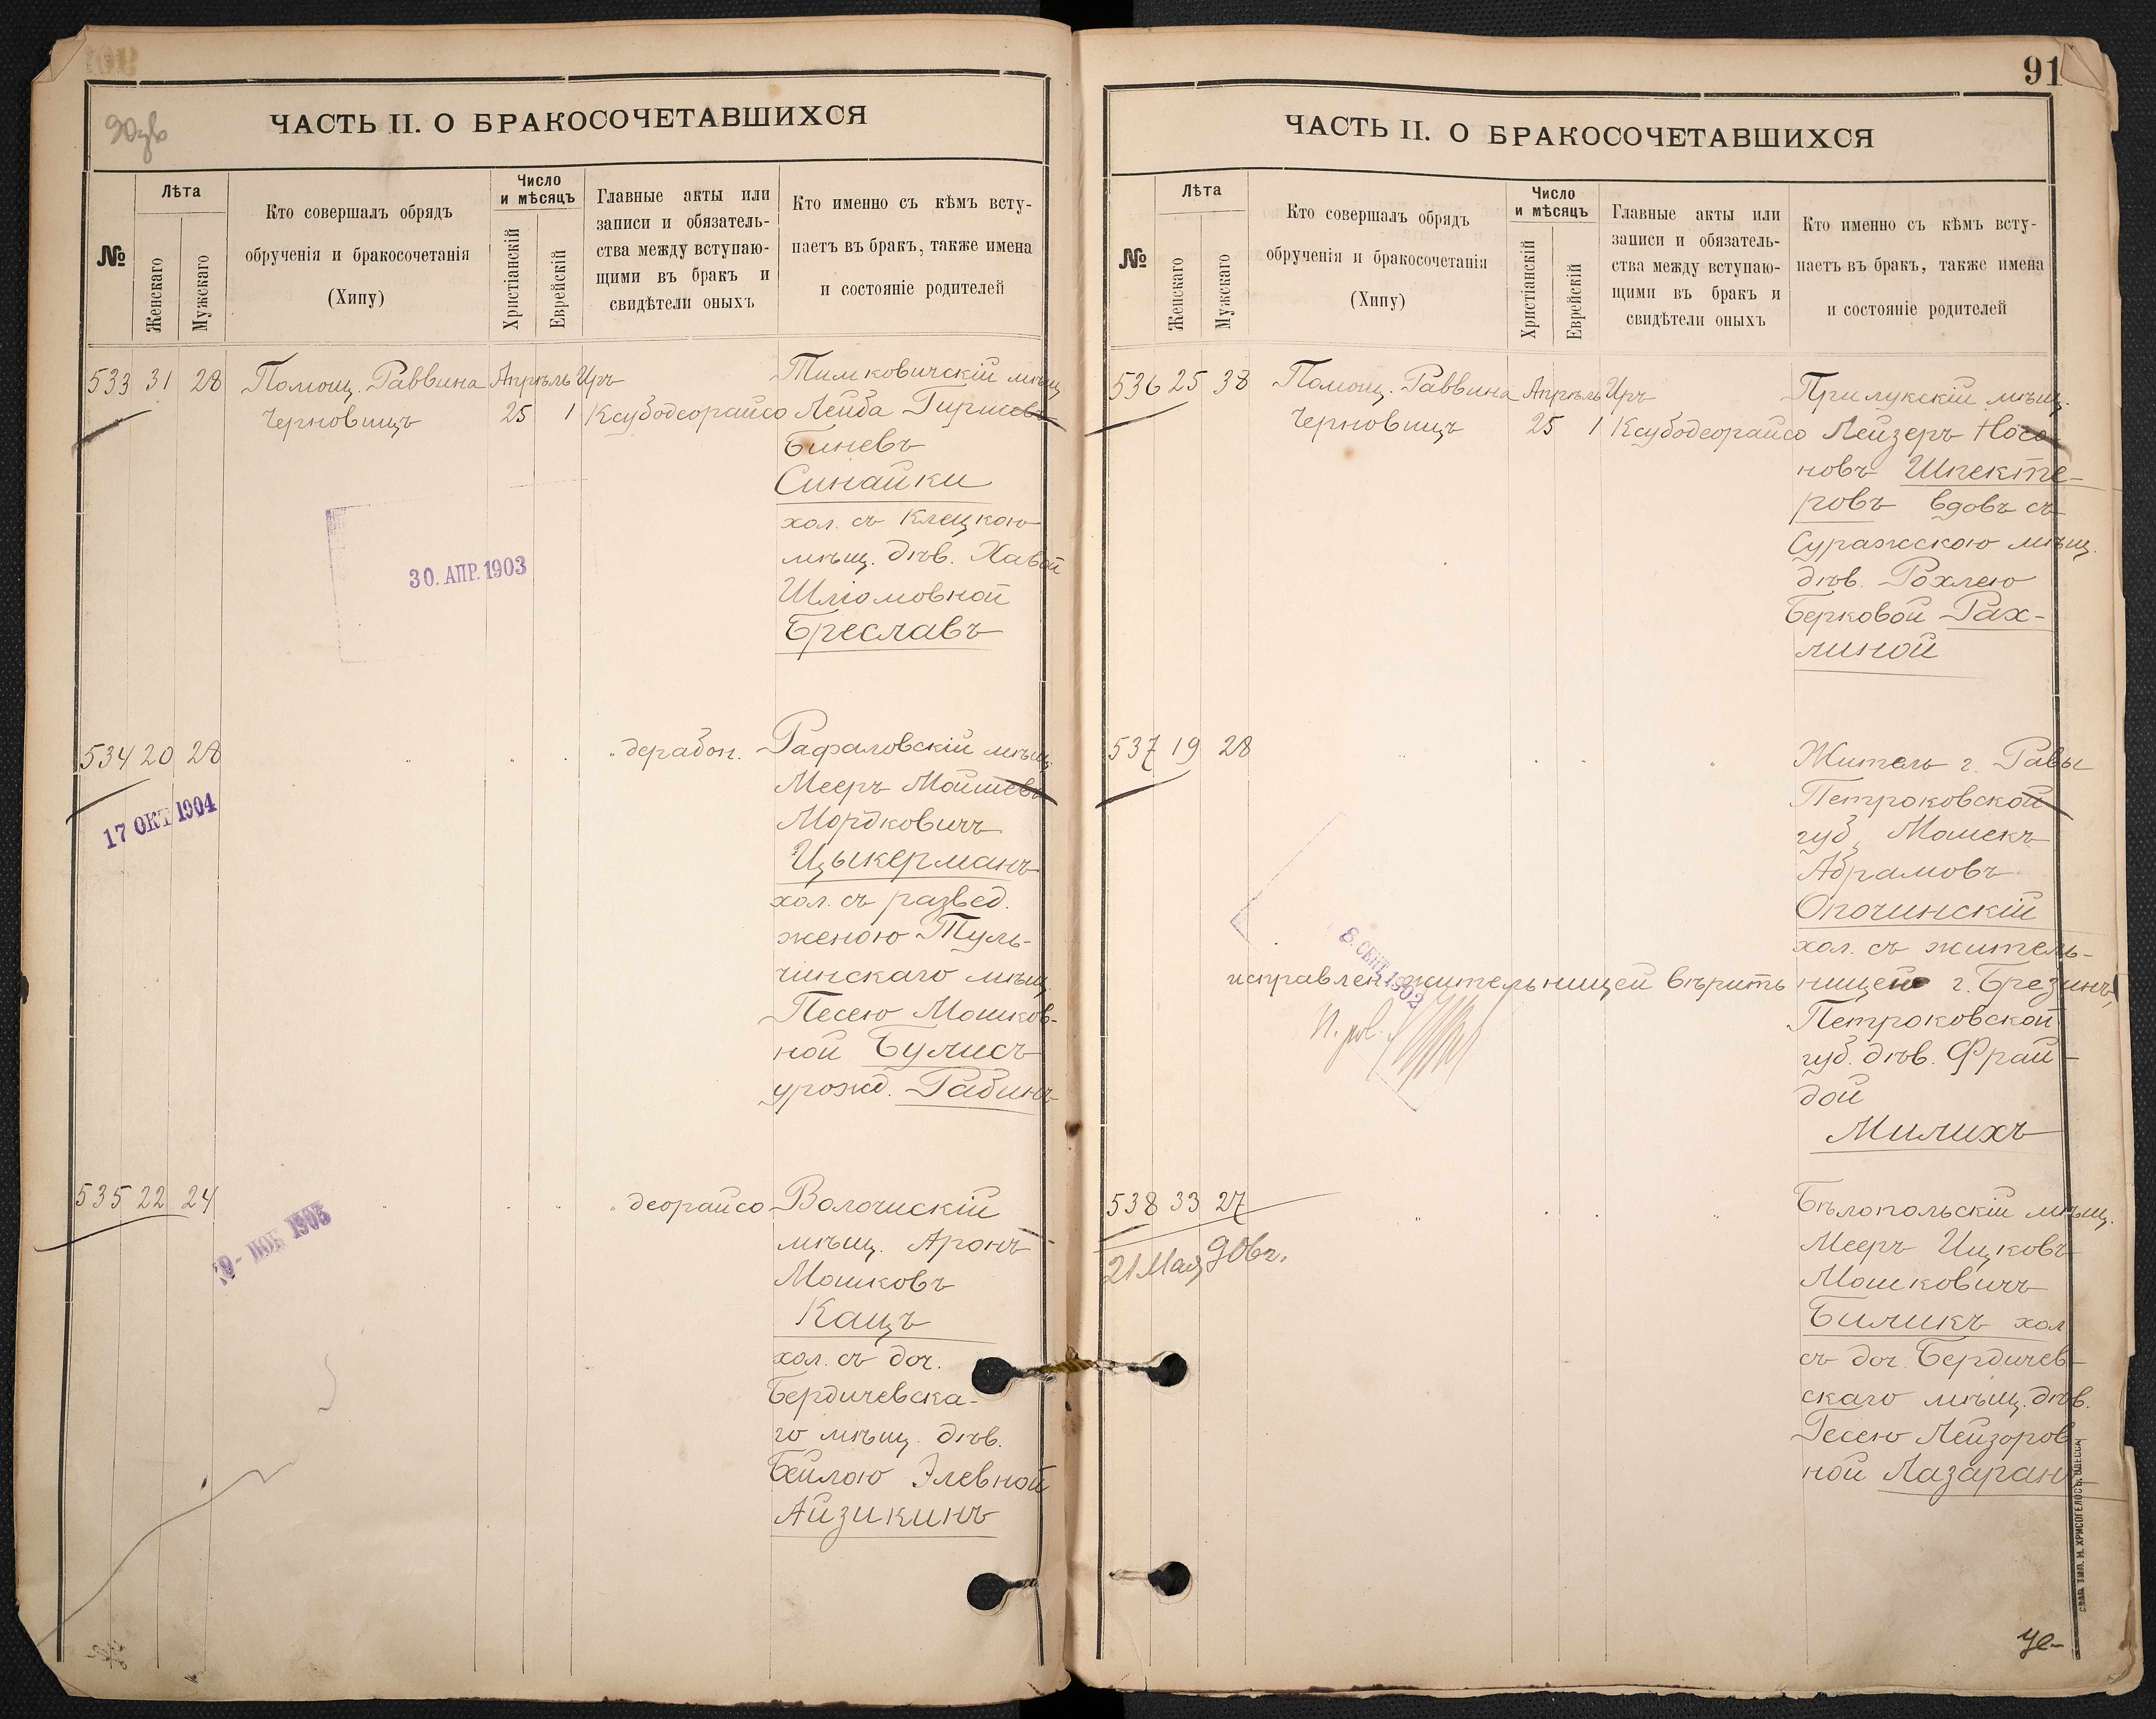 90 об
ЧАСТЬ II. О БРАКОСОЧЕТАВШИХСЯ
№
Лѣта
Женскаго
Мужскаго
Кто совершалъ обрядъ
обрученія и бракосочетанія
(Хипу)
Число
и мѣсяцъ
Христіанскій
Еврейскій
Главные акты или
записи и обязатель-
ства между вступаю-
щими въ бракъ и
свидѣтели оныхъ
Кто именно съ кѣмъ всту-
паетъ въ бракъ, также имена
и состояніе родителей
533 31 28 Помощ. Раввина Апрѣль Иръ Тимковичскій мѣщ.
Черновицъ 25 1 Ксубодеорайсо Лейба Гиршевъ
Биневъ
Синайки
хол. съ Клецкою
мѣщ. дѣв. Хавой
Шліомовной
Бреславъ
30. АПР. 1903
534 20 28 " " " " дерабон. Рафаловскій мѣщ.
Мееръ Мойшевъ
Мордковичъ
Цыкерманъ
хол. съ развед.
женою Туль-
чинскаго мѣщ.
Песею Мошков-
ной Булисъ
урожд. Рабинъ
17 ОКТ 1904
535 22 24 " " " " деорайсо Волочискій
мѣщ. Аронъ
Мошковъ
Кацъ
хол. съ доч.
Бердичевска-
го мѣщ. дѣв.
Бейлою Элевной
Айзикинъ
НОЯ 1905
91
ЧАСТЬ II. О БРАКОСОЧЕТАВШИХСЯ
№
Лѣта
Женскаго
Мужскаго
Кто совершалъ обрядъ
обрученія и бракосочетанія
(Хипу)
Число
и мѣсяцъ
Христіанскій
Еврейскій
Главные акты или
записи и обязатель-
ства между вступаю-
щими въ бракъ и
свидѣтели оныхъ
Кто именно съ кѣмъ всту-
паетъ въ бракъ, также имена
и состояніе родителей
536 25 38 Помощ. Раввина Апрѣль Иръ Прилукскій мѣщ.
Черновицъ 25 1 Ксубодеорайсо Лейзеръ Носо-
новъ Шпекте-
ровъ вдовъ съ
Суражскою мѣщ.
дѣв. Рохлею
Берковой Рах-
линой
537 19 28 " " " " Житель г. Равы
Петроковской
губ. Мошекъ
Абрамовъ
Опочинскій
хол. съ житель-
исправлен. жительницей вѣрить ницей г. Брезинъ,
Петроковской
губ. дѣв. Фрай-
дой
Милихъ
6. СЕНТ. 1902
538 33 27 " " " " Бѣлопольскій мѣщ.
Мееръ Ицковъ
Мошковичъ
Биликъ хол
съ доч. Бердичев-
скаго мѣщ. дѣв.
Гесею Лейзоров-
ной Лазаранъ
21 Мая 906 г.
СЛАВ. ТИП. Н. ХРИСОГЕЛОСЪ, ОДЕССА